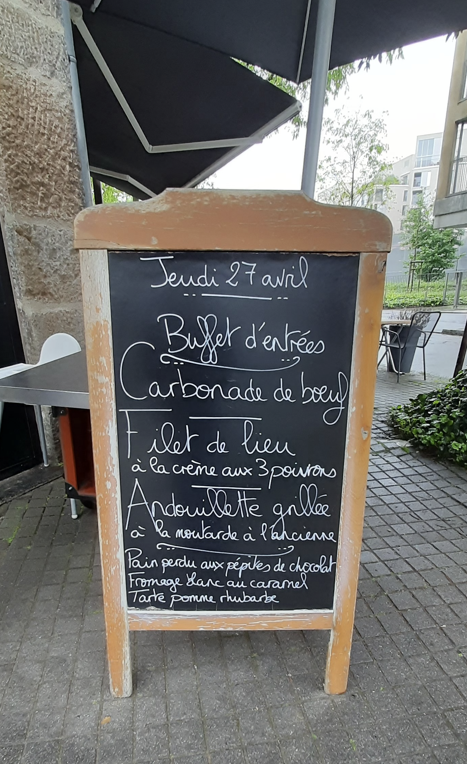 Jeudi 27 avril
Buffet d'entrées
Carbonade de boeuf
Filet de lieu
à la crème aux 3 poivrons
Andouillette grillée
à la moutarde à l'ancienne
Pain perdu aux pépites de chocolat
Fromage blanc au caramel
Tarte pomme rhubarbe